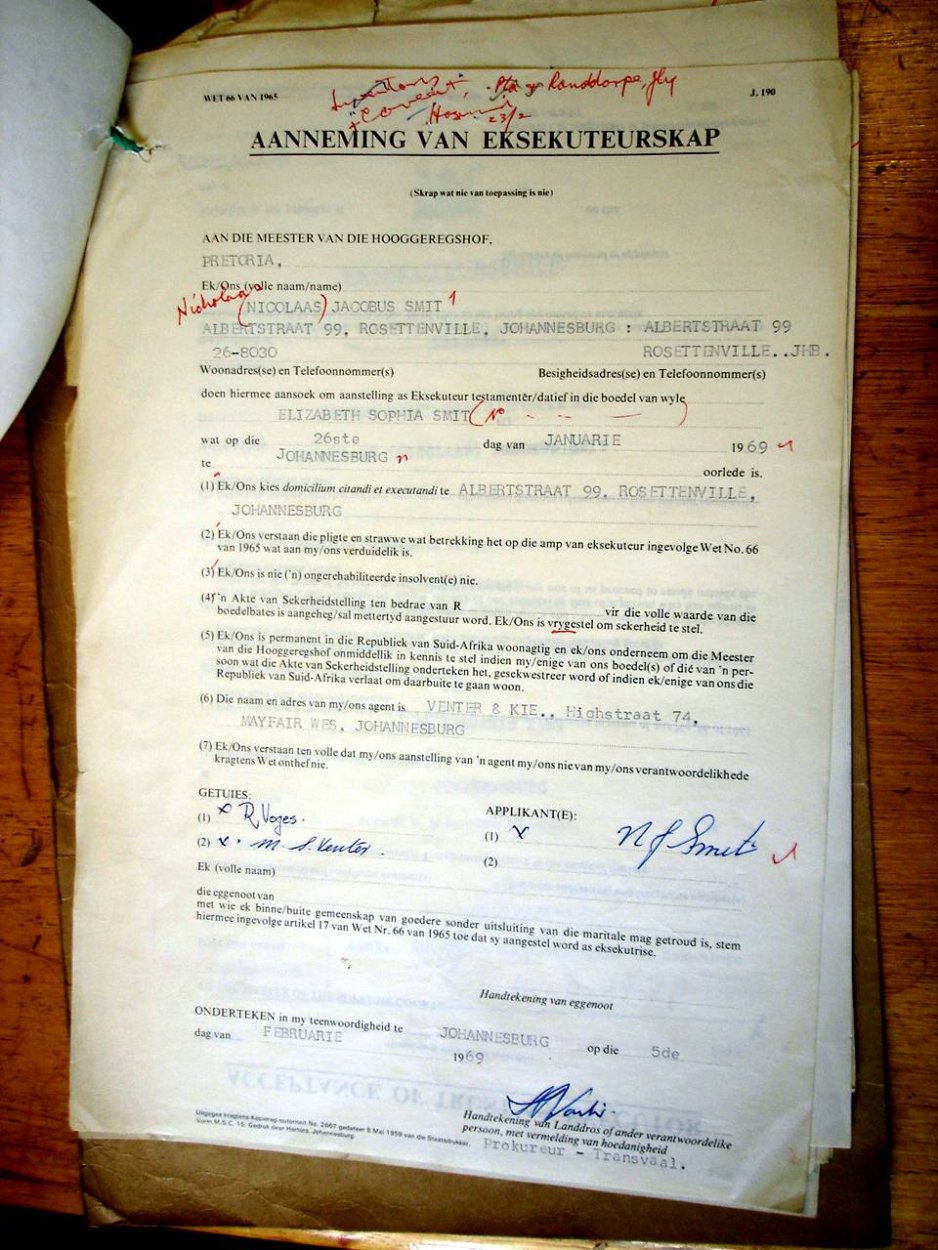 WET 66 VAN 1965
J. 190
23/2
AANNEMING VAN EKSEKUTEURSKAP
(Skrap wat nie van toepassing is nie)
AAN DIE MEESTER VAN DIE HOOGGEREGSHOF,
PRETORIA,
Ek/Ons (volle naam/name)
Nicholaas
(NICOLAAS) JACOBUS SMIT
ALBERTSTRAAT 99, ROSETTENVILLE, JOHANNESBURG : ALBERTSTRAAT 99
26-8030 ROSETTENVILLE..JHB.
Woonadres(se) en Telefoonnommer(s) Besigheidsadres(se) en Telefoonnommer(s)
doen hiermee aansoek om aanstelling as Eksekuteur testamentêr/datief in die boedel van wyle
ELIZABETH SOPHIA SMIT
wat op die 26ste dag van JANUARIE 1969
te JOHANNESBURG oorlede is.
(1) Ek/Ons kies domicilium citandi et executandi te ALBERTSTRAAT 99, ROSETTENVILLE,
JOHANNESBURG
(2) Ek/Ons verstaan die pligte en strawwe wat betrekking het op die amp van eksekuteur ingevolge Wet No. 66
van 1965 wat aan my/ons verduidelik is.
(3) Ek/Ons is nie ('n) ongerehabiliteerde insolvent(e) nie.
(4) 'n Akte van Sekerheidstelling ten bedrae van R vir die volle waarde van die
boedelbates is aangeheg/sal mettertyd aangestuur word. Ek/Ons is vrygestel om sekerheid te stel.
(5) Ek/Ons is permanent in die Republiek van Suid-Afrika woonagtig en ek/ons onderneem om die Meester
van die Hooggeregshof onmiddellik in kennis te stel indien my/enige van ons boedel(s) of dié van 'n per-
soon wat die Akte van Sekerheidstelling onderteken het, gesekwestreer word of indien ek/enige van ons die
Republiek van Suid-Afrika verlaat om daarbuite te gaan woon.
(6) Die naam en adres van my/ons agent is VENTER & KIE., Highstraat 74,
MAYFAIR WES, JOHANNESBURG
(7) Ek/Ons verstaan ten volle dat my/ons aanstelling van 'n agent my/ons nie van my/ons verantwoordelikhede
kragtens Wet onthef nie.
GETUIES: APPLIKANT(E):
(1) x R. Voges. (1) x N J Smit
(2) x. M. S. Venter. (2)
Ek (volle naam)
die eggenoot van
met wie ek binne/buite gemeenskap van goedere sonder uitsluiting van die maritale mag getroud is, stem
hiermee ingevolge artikel 17 van Wet Nr. 66 van 1965 toe dat sy aangestel word as eksekutrise.
Handtekening van eggenoot
ONDERTEKEN in my teenwoordigheid te JOHANNESBURG op die 5de
dag van FEBRUARIE 1969
Handtekening van Landdros of ander verantwoordelike
persoon, met vermelding van hoedanigheid
Prokureur - Transvaal.
Uitgegee kragtens Kopiereg-outoriteit No. 2667 gedateer 8 Mei 1959 van die Staatsdrukker.
Vorm M.S.C. 16. Gedruk deur Hortors, Johannesburg.